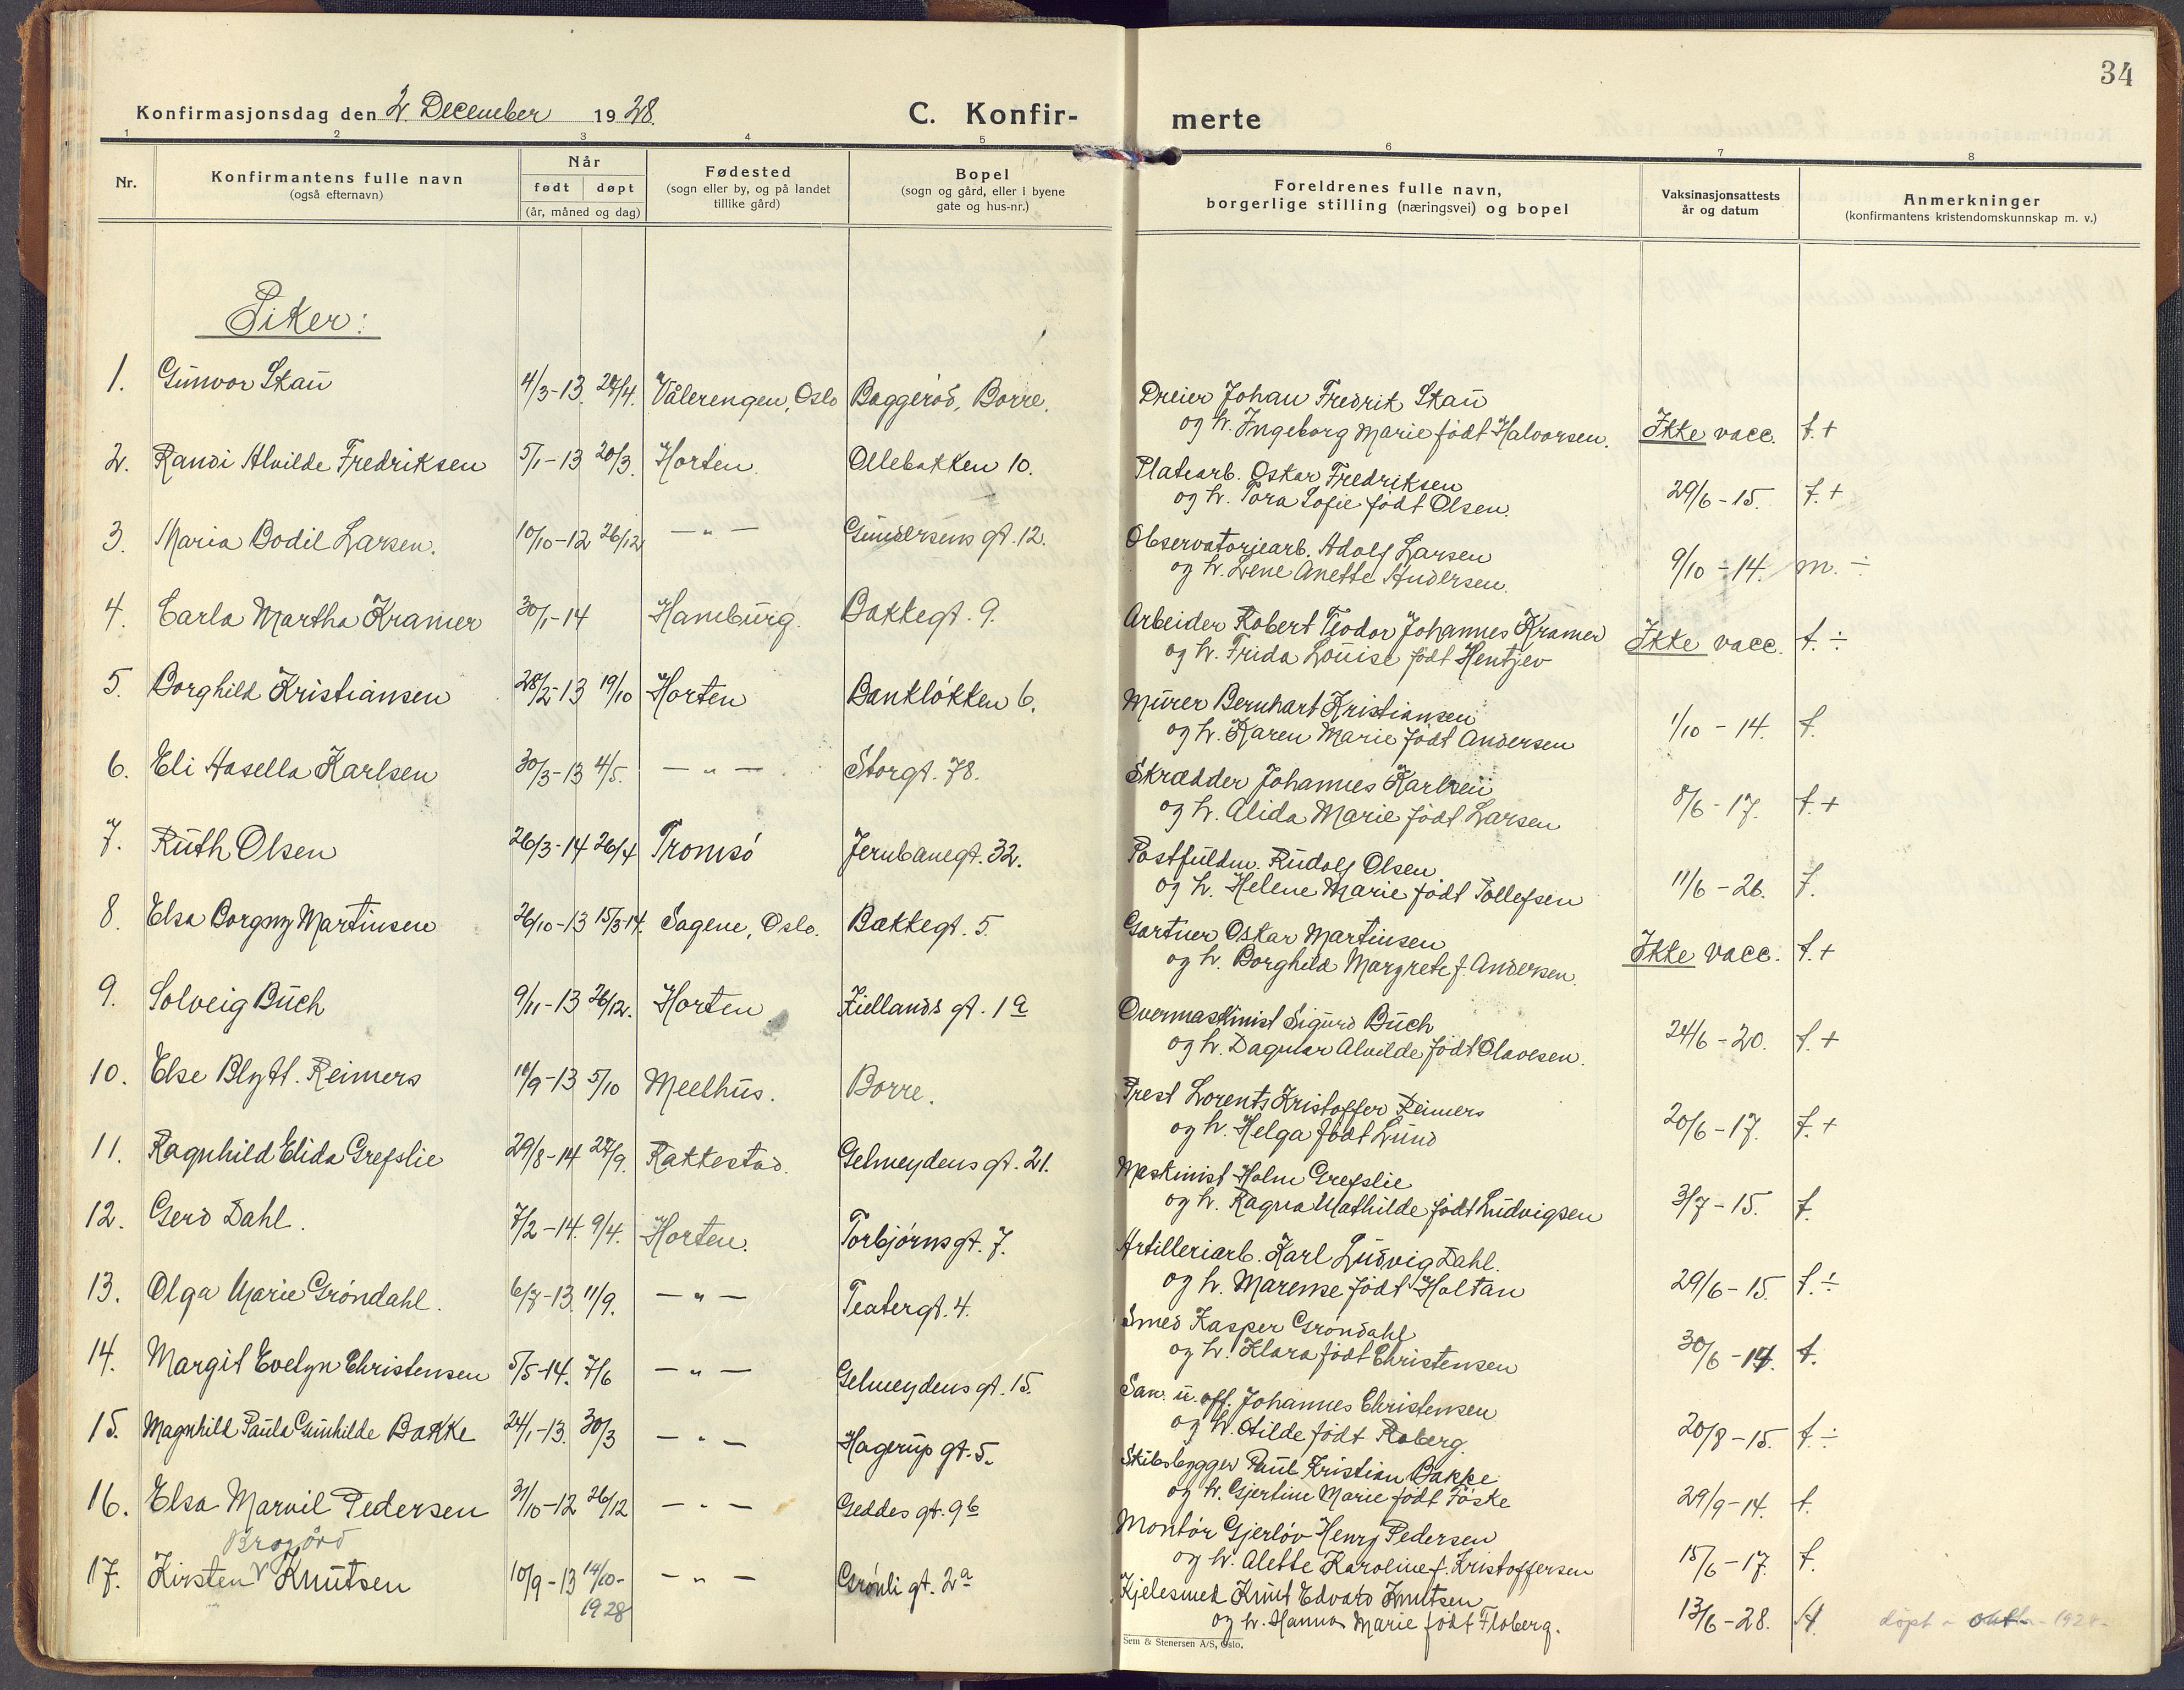 34
Konfirmasjonsdag den 2. December 1928.
C. Konfir-
merte
1 2 3 4 5 6 7 8
Nr.
Konfirmantens fulle navn
(også efternavn)
Når
født døpt
(år, måned og dag)
Fødested
(sogn eller by, og på landet
tillike gård)
Bopel
(sogn og gård, eller i byene
gate og hus-nr.)
Foreldrenes fulle navn,
borgerlige stilling (næringsvei) og bopel
Vaksinasjonsattests
år og datum
Anmerkninger
(konfirmantens kristendomskunnskap m. v.)
Piker:
1. Gunvor Skau 4/3-13. 27/4. Vålerengen, Oslo Baggerød, Borre. Dreier Johan Fredrik Skau
og h. Ingeborg Marie født Halvorsen. Ikke vacc. t.+
2. Randi Alvilde Fredriksen 5/1-13 20/3. Horten. Ollebakken 10. Platearb. Oskar Fredriksen
og h. Tora Sofie født Olsen. 29/6-15. t.+
3. Maria Bodil Larsen. 10/10-12 26/12 — " — Gundersens gt. 12. Observatoriearb. Adolf Larsen
og h. Lene Anette Andersen. 9/10-14. m. ÷
4. Carla Martha Kramer 30/1-14 Hamburg. Bakkegt. 9. Arbeider Robert Teodor Johannes Kramer
og h. Frida Louise født Hentjev Ikke vacc. t. ÷
5. Borghild Kristiansen 28/2-13 19/10 Horten Bankløkken 6. Murer Bernhart Kristiansen
og h. Karen Marie født Andersen 1/10-14. t.
6. Eli Hasella Karlsen 30/3-13 4/5. — " — Storgt. 78. Skrædder Johannes Karlsen
og h. Alida Marie født Larsen 8/6-17. t.+
7. Ruth Olsen 26/3-14 26/4 Tromsø Jernbanegt. 32. Postfuldm. Rudolf Olsen
og h. Helene Marie født Tollefsen 11/6-26. t.
8. Elsa Borgny Martinsen 26/10-13 15/3-14. Sagene, Oslo. Bakkegt. 5. Gartner Oskar Martinsen
og h. Borghild Margrete f. Andersen. Ikke vacc. t.+
9. Solveig Buch 9/11-13 26/12. Horten. Kiellands gt. 1a Overmaskinist Sigurd Buch
og h. Dagmar Alvilde født Olavesen. 24/6-20. t.+
10. Else Blytt. Reimers 10/9-13 5/10 Meelhus. Borre. Prest Lorents Kristoffer Reimers
og h. Helga født Lund 20/6-17. t.+
11. Ragnhild Elida Grefslie 29/8-14 27/9. Rakkestad. Gelmeydens gt. 21. Maskinist Holm Grefslie
og h. Ragna Mathilde født Ludvigsen 3/7-15. t.
12. Gerd Dahl. 7/2-14. 9/4. Horten. Torbjørns gt. 7. Artilleriarb. Karl Ludvig Dahl.
og h. Marense født Holtan 29/6-15. t. ÷
13. Olga Marie Grøndahl. 6/7-13. 11/9. — " — Teatergt. 4. Smed Kasper Grøndahl
og h. Klara født Christensen 30/6-14. t.
14. Margit Evelyn Christensen 5/5-14. 7/6 — " — Gelmeydens gt. 15. San. u. off. Johannes Christensen
og h. Otilde født Roberg. 20/8-15. t. ÷
15. Magnhild Paula Gunhilde Bakke 24/1-13. 30/3 — " — Hagerup gt. 5. Skibsbygger Paul Kristian Bakke
og h. Gjertine Marie født Føske 29/9-14. t.
16. Elsa Marvil Pedersen 31/10-12 26/12 — " — Geddes gt. 9b Montør Gjerløv Henry Pedersen
og h. Alette Karoline f. Kristoffersen 15/6-17. t.
17. Kirsten Knutsen 10/9-13 14/10-1928 — " — Grønli gt. 2a Kjelesmed Knut Edvard Knutsen
og h. Hanna Marie født Floberg. 13/6-28. døpt 1928-
Sem & Stenersen A/S, Oslo.